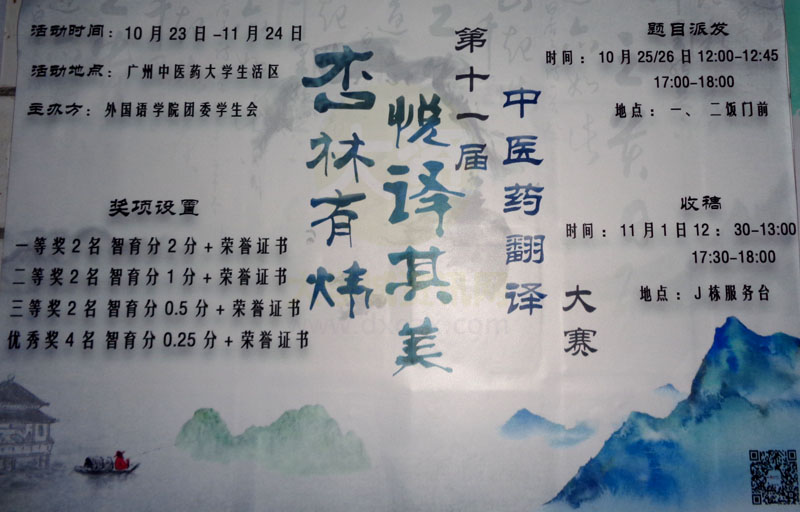 活动时间：10月23日-11月24日
活动地点：广州中医药大学生活区
主办方：外国语学院团委学生会
奖项设置
一等奖2名 智育分2分+荣誉证书
二等奖2名 智育分1分+荣誉证书
三等奖2名 智育分0.5分+荣誉证书
优秀奖4名 智育分0.25分+荣誉证书
杏林有炜
悦译其美
第十一届
中医药翻译
大赛
题目派发
时间：10月25/26日12:00-12:45
17:00-18:00
地点：一、二饭门前
收稿
时间：11月1日12：30-13:00
17:30-18:00
地点：J栋服务台